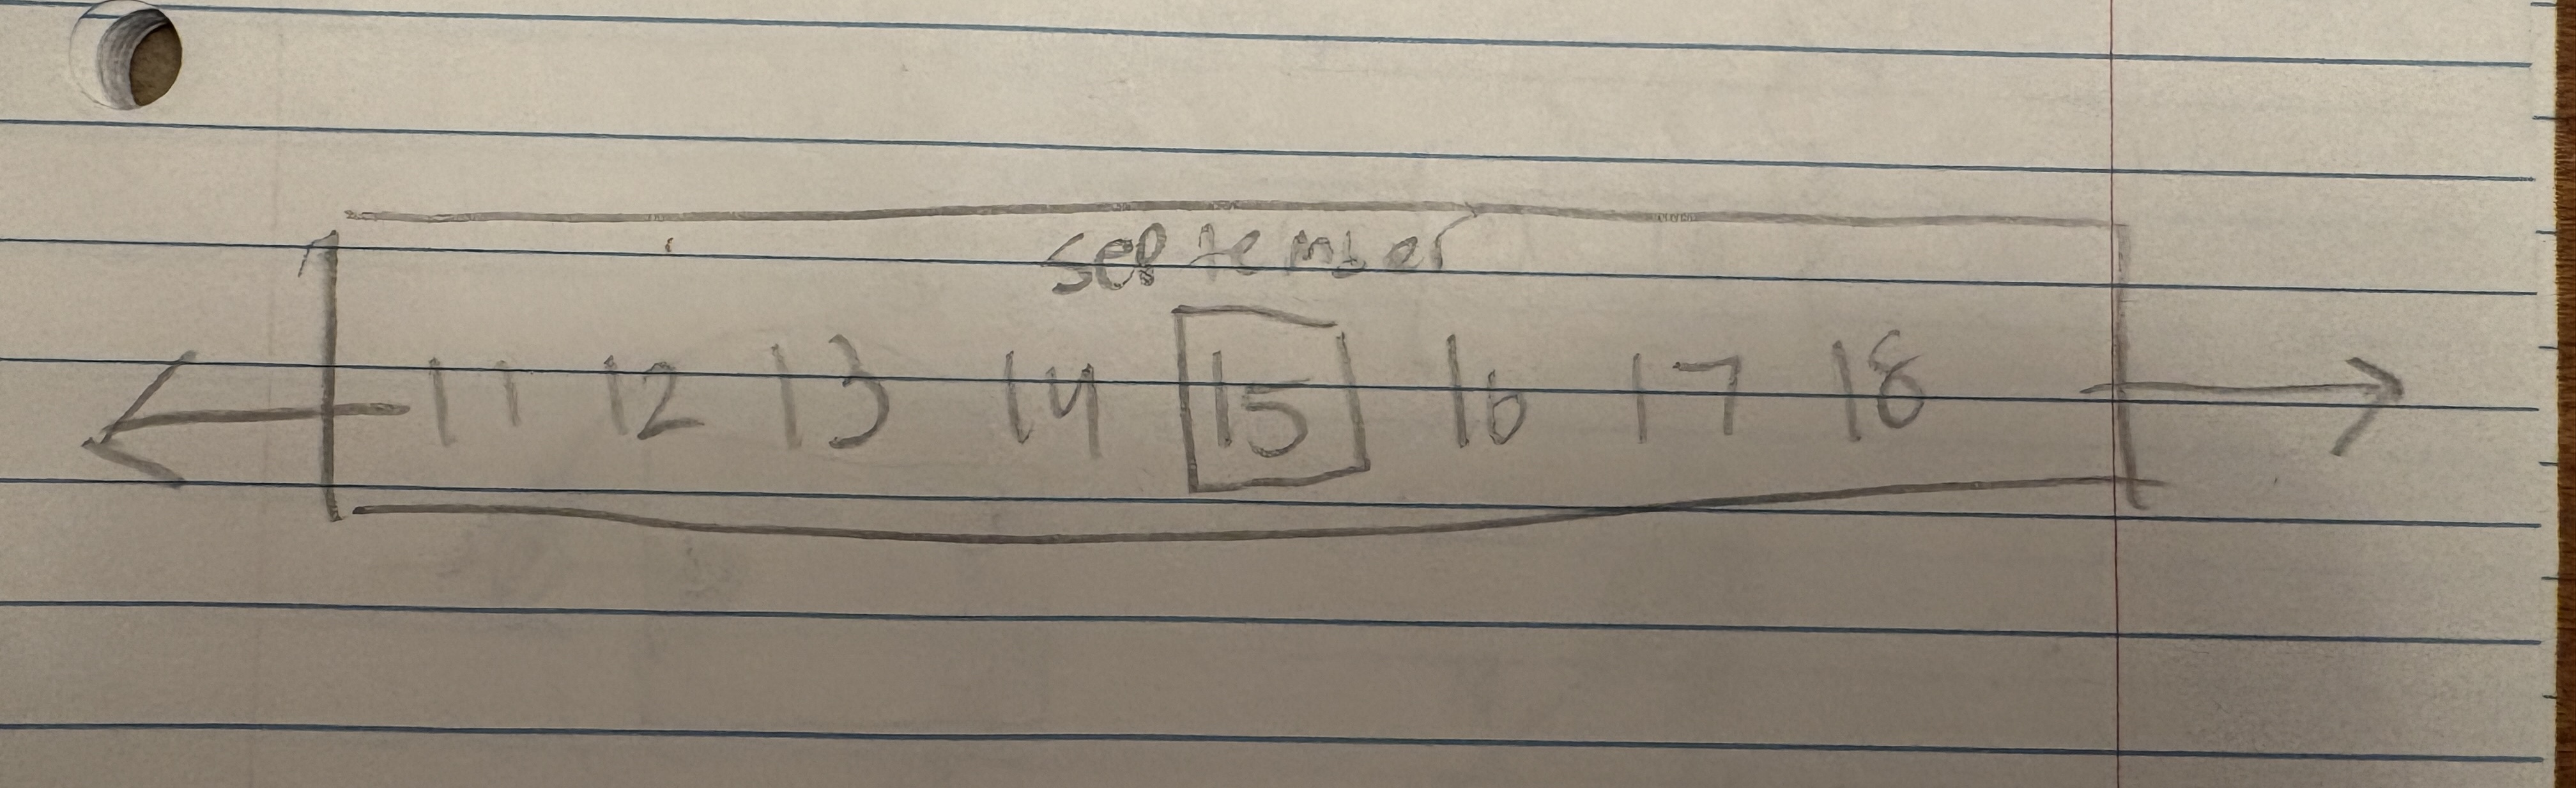 september
11 12 13 14 15 16 17 18